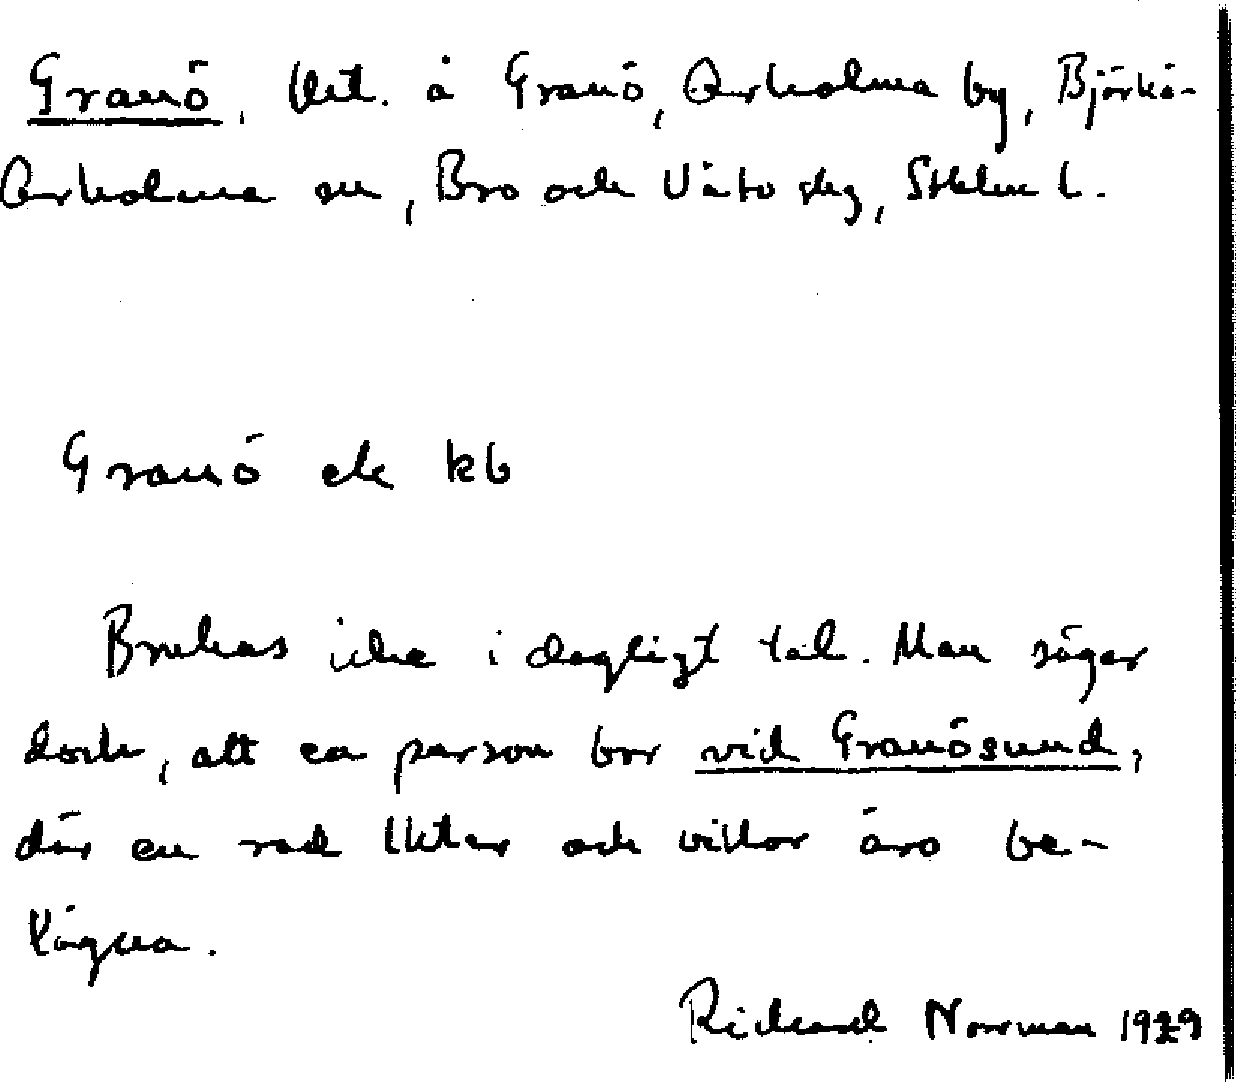 Granö, lht. å Granö, Arholma by, Björkö-
Arholma sn, Bro och Vätö skg, Sthlm l.
Granö ek kb
Brukas icke i dagligt tal. Man säger
dock, att en person bor vid Granösund,
där en rad lhter och villor äro be-
lägna.
Richard Norrman 1929